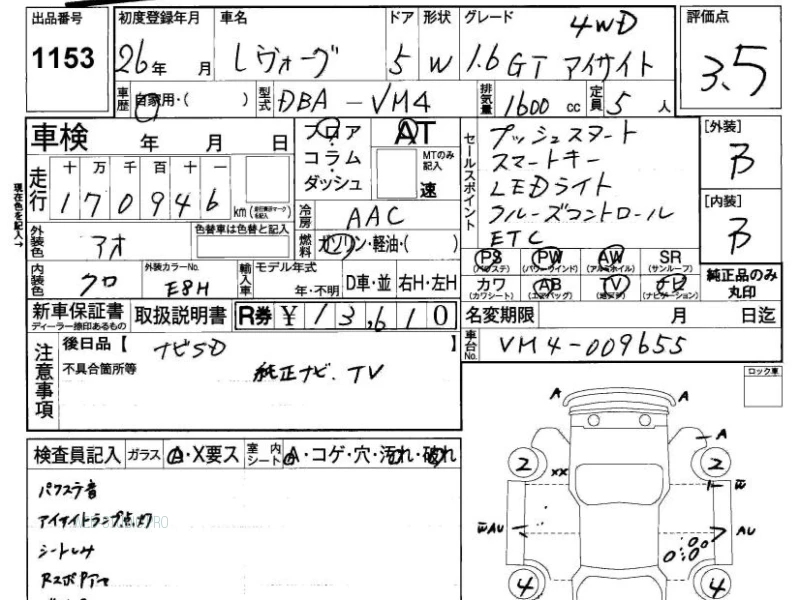 出品番号 初度登録年月 車名 ドア 形状 グレード 評価点
1153 26年 月 レヴォーグ 5 W 1.6 GT アイサイト 4WD 3.5
車歴 自家用・( ) 型式 DBA-VM4 排気量 1600 cc 定員 5 人
車検 年 月 日
フロア・コラム・ダッシュ AT MTのみ記入 速
走行 十 万 千 百 十 一
170946 km
現在色を記入→
外装色 アオ 色替車は色替と記入
冷房 AAC
燃料 ガソリン・軽油・( )
内装色 クロ 外装カラーNo. E8H
輸入車 モデル年式 年・不明 D車・並 右H・左H
セールスポイント
プッシュスタート
スマートキー
LEDライト
クルーズコントロール
ETC
[外装] B
[内装] B
PS PW AW SR
(パワステ) (パワーウインド) (アルミホイル) (サンルーフ)
カワ AB TV ナビ
(カワシート) (エアバッグ) (ナビゲーション)
純正品のみ丸印
新車保証書 取扱説明書 R券 ¥13,610
ディーラー捺印あるもの
名変期限 月 日迄
車台No. VM4-009655
注意事項
後日品【 ナビSD 】
不具合箇所等 純正ナビ、TV
ロック車
検査員記入 ガラス A・X要ス 室内シート A・コゲ・穴・汚れ・破れ
パワステ音
アイサイトランプ点灯
シートしみ
A A
A
2 2
XX W
WAU AU
4 4